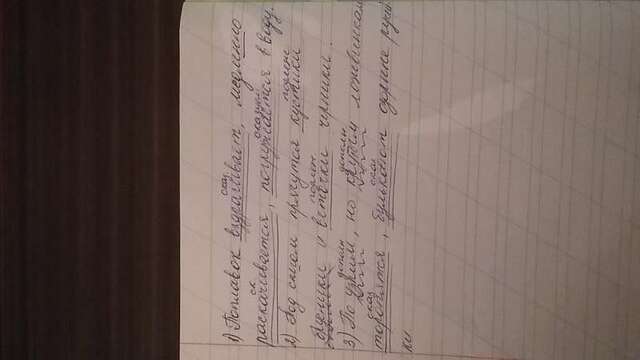 сказ
1) Поплавок вздрагивает, медленно
ск сказуем
раскачивается, погружается в воду.
подлеж
2) Под снегом прячутся кустики
подлеж
брусники и веточки черники.
дополн дополн
3) По узким, но крутым ложбинкам
сказ сказ
торопятся, булькают озорные ручей
ки